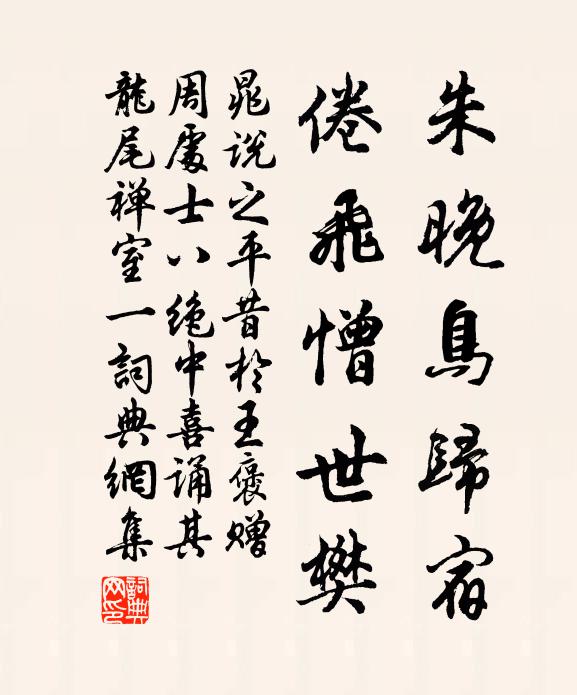 朱晚鳥歸宿
倦飛憎世樊
晁說之平昔於王褒贈
周處士八絶中喜誦其
龍尾禅室一詞典網集
詞典網印